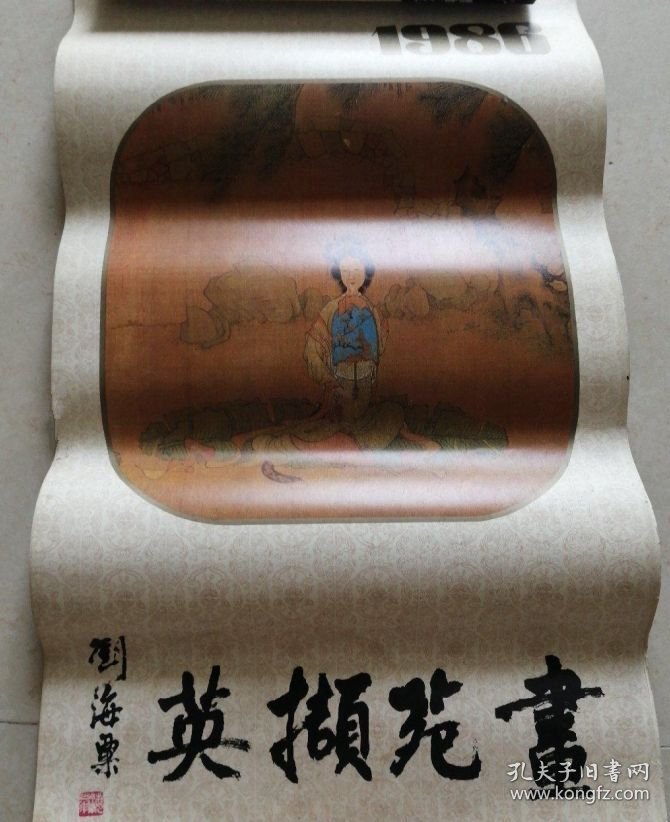 1986
畫苑擷英
劉海粟
孔夫子旧書网
www.kongfz.com